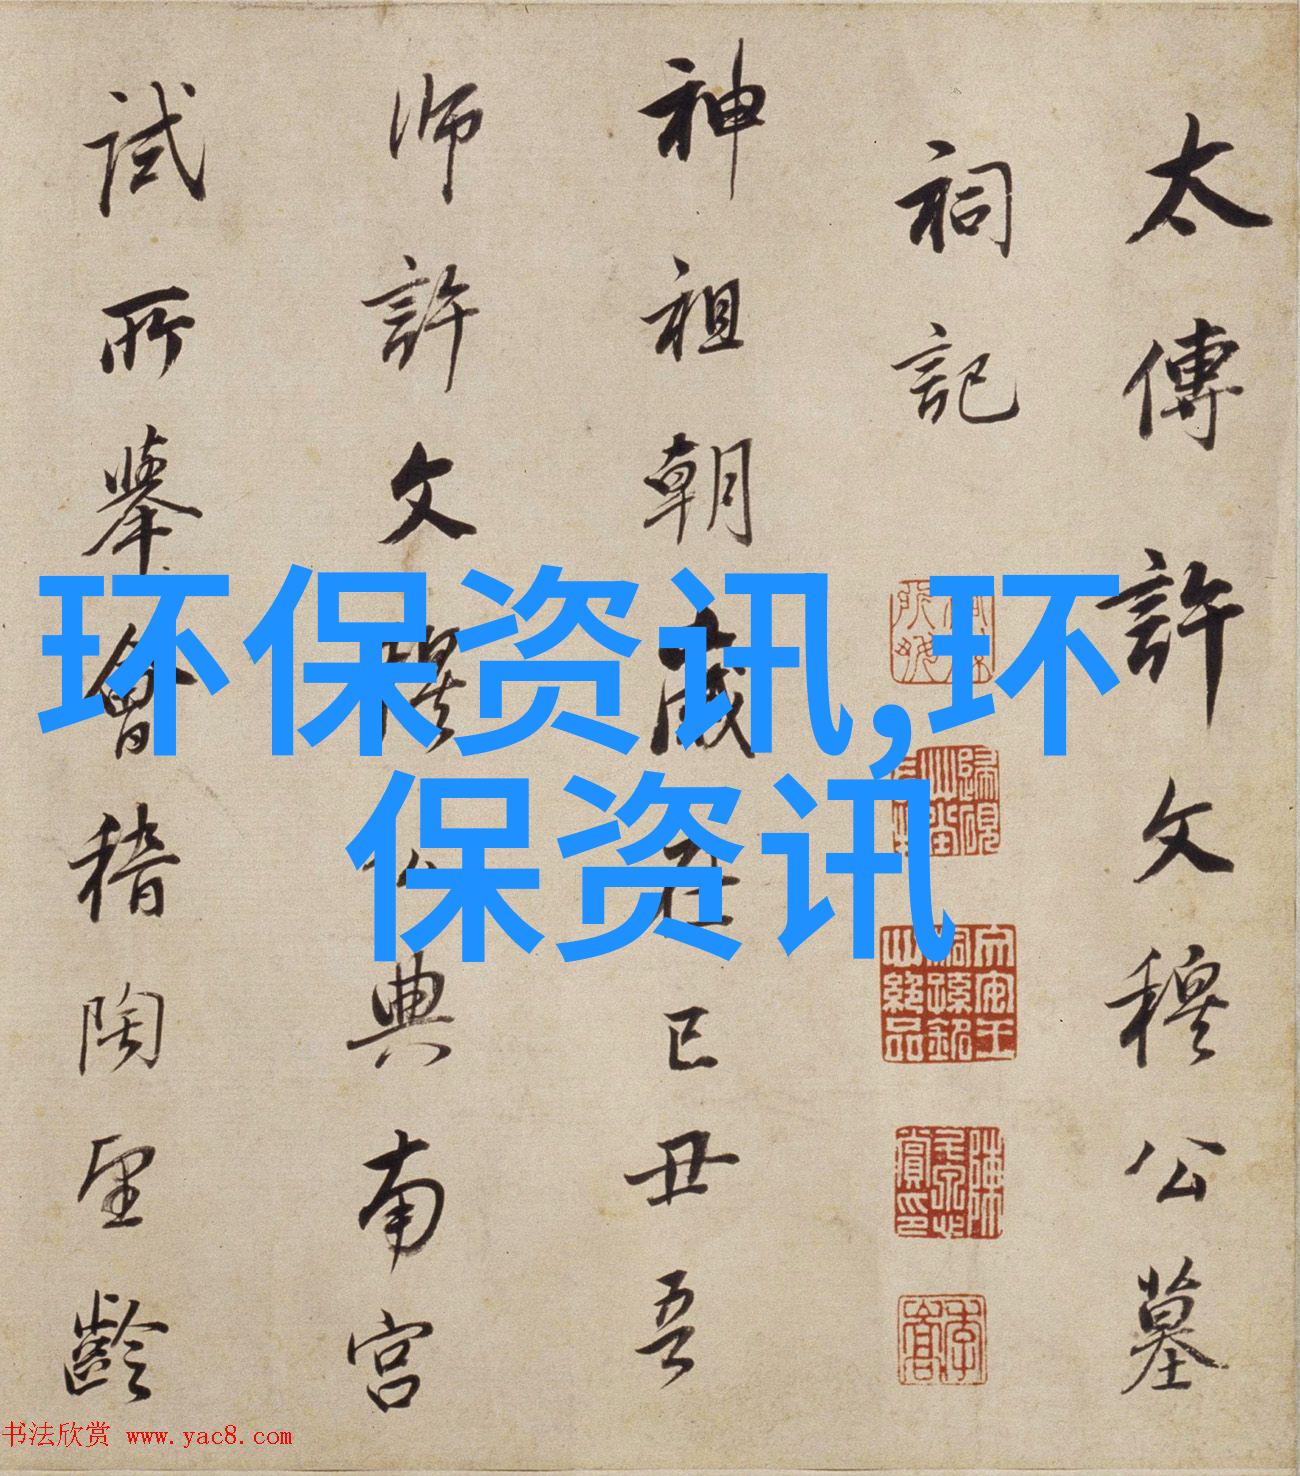 太傅許文穆公墓
祠記
神祖朝歲在己丑吾
師許文穆公典南宮
試所舉會稽陶望齡
环保资讯,环
保资讯
书法欣赏 www.yac8.com